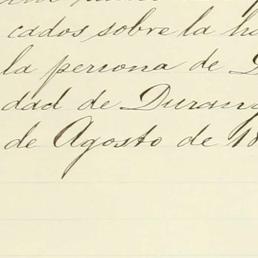 cados sobre la ha
la persona de D
dad de Duran
de Agosto de 18